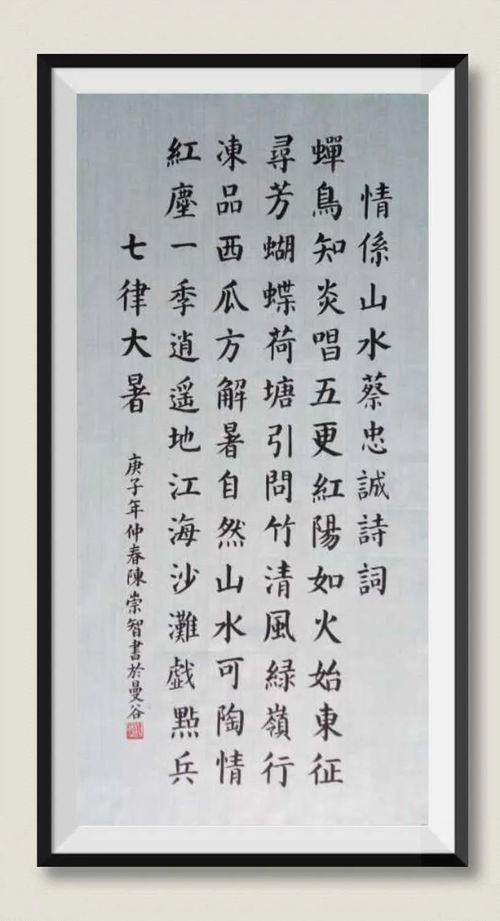 情係山水蔡忠誠詩詞
蟬鳥知炎唱五更紅陽如火始東征
尋芳蝴蝶荷塘引問竹清風緑嶺行
凍品西瓜方解暑自然山水可陶情
紅塵一季逍遥地江海沙灘戯點兵
七律大暑
庚子年仲春陳崇智書於曼谷